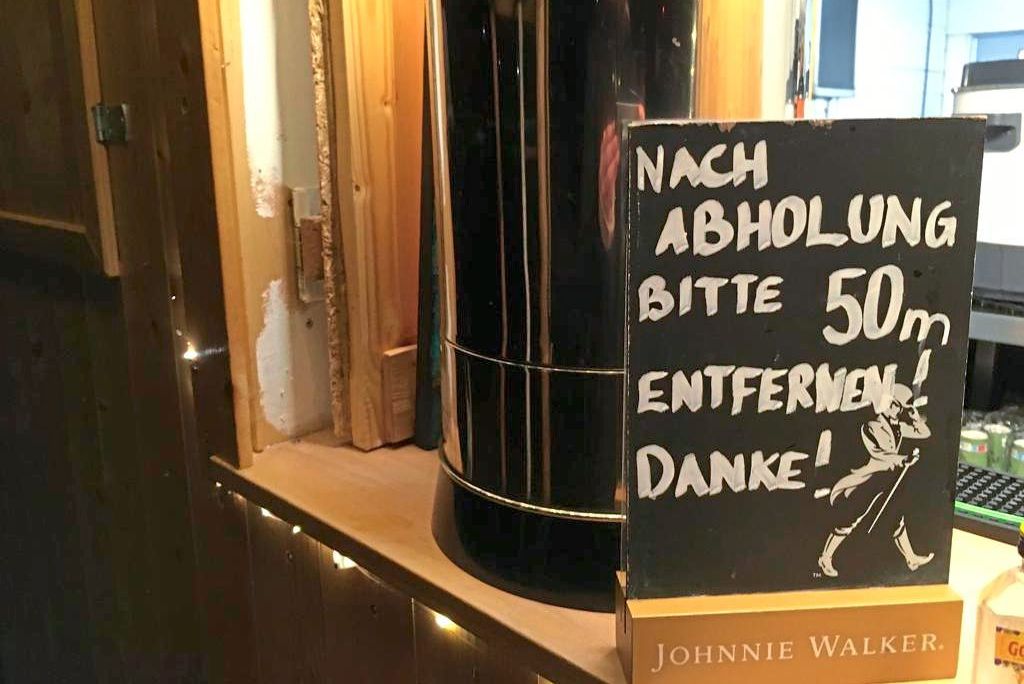 NACH
ABHOLUNG
BITTE 50m
ENTFERNEN!
DANKE!
TM
JOHNNIE WALKER.